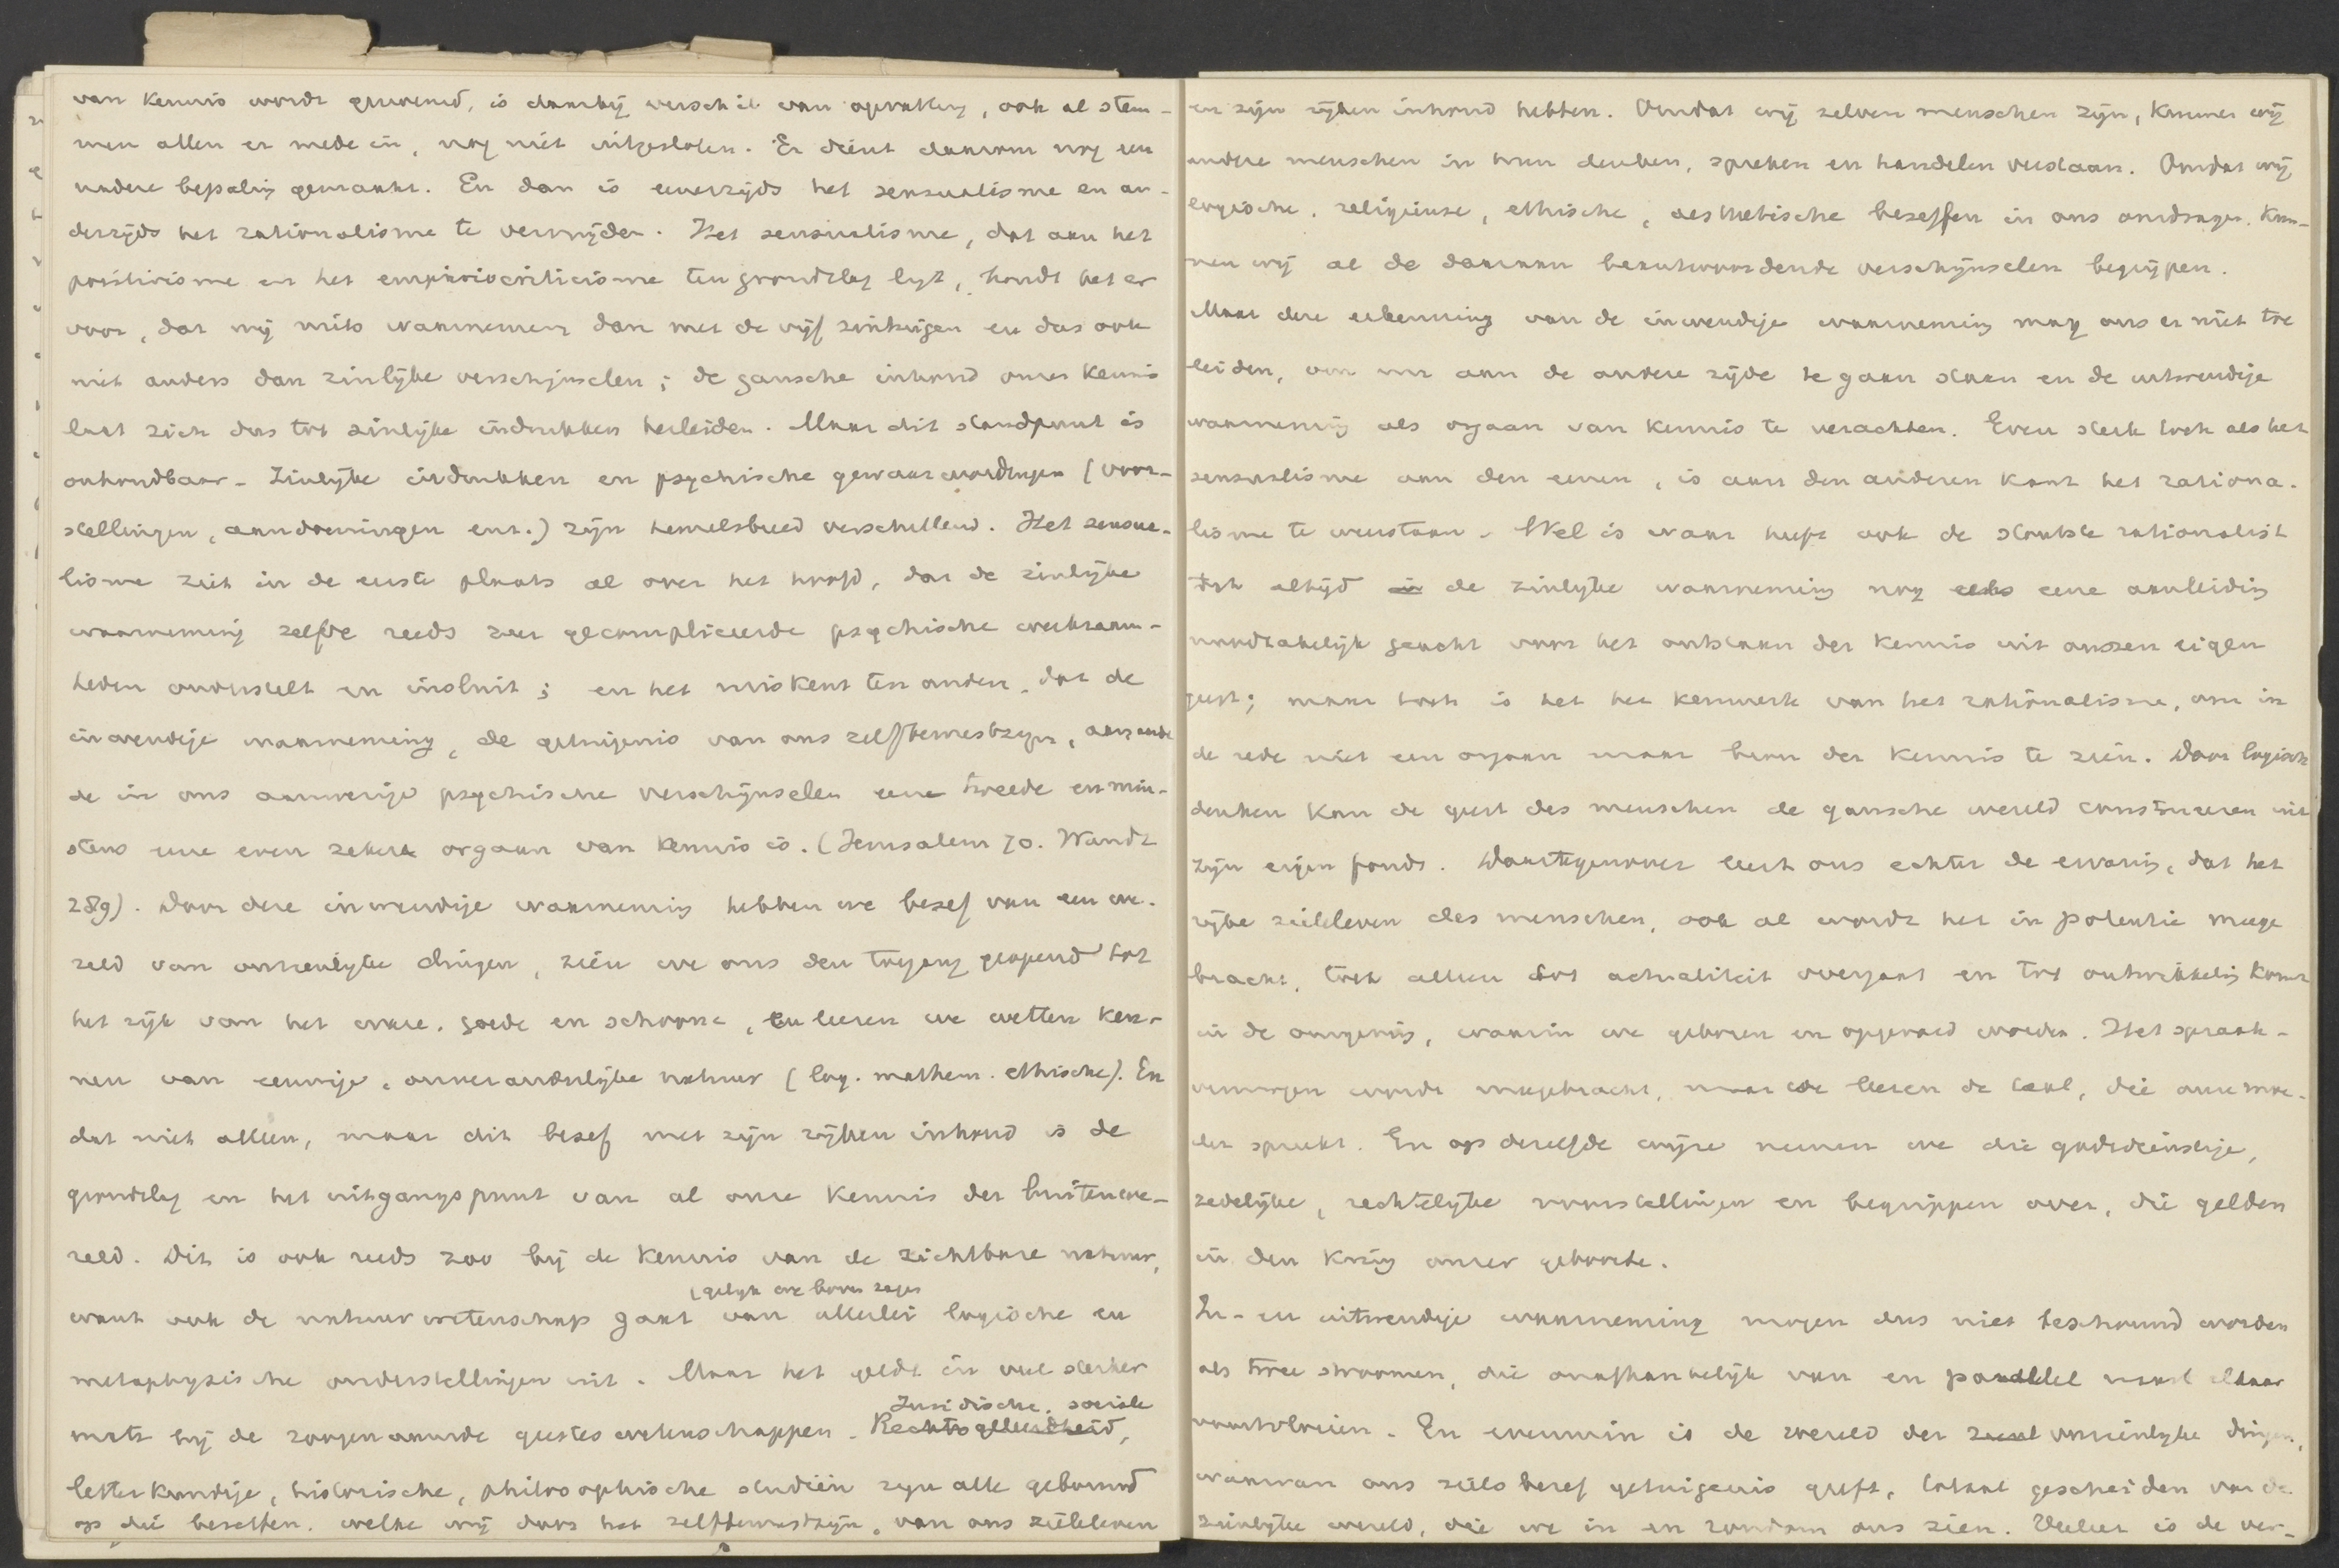 van kennis wordt genoemd, is daarbij verschil van opvatting, ook al stem-
men allen er mede in, nog niet uitgesloten. Er dient daarom nog een
nadere bepaling gemaakt. En dan is eenerzijds het sensualisme en an-
derzijds het rationalisme te vermijden. Het sensualisme, dat aan het
positivisme en het empiriocriticisme ten grondslag ligt, houdt het er
voor, dat wij niets waarnemen dan met de vijf zintuigen en dus ook
niet anders dan zinlijke verschijnselen; de gansche inhoud onzer kennis
laat zich dus tot zinlijke indrukken herleiden. Maar dit standpunt is
onhoudbaar. Zinlijke indrukken en psychische gewaarwordingen (voor-
stellingen, aandoeningen enz.) zijn hemelsbreed verschillend. Het sensua-
lisme ziet in de eerste plaats al over het hoofd, dat de zinlijke
waarneming zelfde reeds zeer gecompliceerde psychische werkzaam-
heden onderstelt en insluit; en het miskent ten andere, dat de
inwendige waarneming, de getuigenis van ons zelfbewustzijn, aangaande
de in ons aanwezige psychische verschijnselen eene tweede en min-
stens eene even zekere orgaan van kennis is. (Jerusalem 70. Wundt
289). Door deze inwendige waarneming hebben we besef van een we-
reld van onzienlijke dingen, zien we ons den toegang geopend tot
het rijk van het ware, goede en schoone, en leeren we wetten ken-
nen van eeuwige, onveranderlijke natuur (log. mathem. ethische). En
dat niet alleen, maar dit besef met zijn rijken inhoud is de
grondslag en het uitgangspunt van al onze kennis der buitenwe-
reld. Dit is ook reeds zoo bij de kennis van de zichtbare natuur,
(gelijk we boven zagen
want ook de natuurwetenschap gaat van allerlei logische en
metaphysische onderstellingen uit. Maar het geldt in veel sterker
Juridische, sociale
mate bij de zoogenaamde geesteswetenschappen. Rechtsgeleerdheid,
letterkundige, historische, philosophische studiën zijn alle gebouwd
op die beseffen, welke wij door het zelfbewustzijn, van ons zieleleven
en zijn rijken inhoud hebben. Omdat wij zelven menschen zijn, kunnen wij
andere menschen in hun denken, spreken en handelen verstaan. Omdat wij
logische, religieuse, ethische, aesthetische beseffen in ons omdragen, kun-
nen wij al de daaraan beantwoordende verschijnselen begrijpen.
Maar deze erkenning van de inwendige waarneming mag ons er niet toe
leiden, om nu aan de andere zijde te gaan staan en de uitwendige
waarneming als orgaan van kennis te verachten. Even sterk toch als het
sensualisme aan den eenen, is aan den anderen kant het rationa-
lisme te weerstaan. Wel is waar heeft ook de stoutste rationalist
toch altijd in de zinlijke waarneming nog eene aanleiding
noodzakelijk geacht voor het ontstaan der kennis uit onzen eigen
geest; maar toch is het het kenmerk van het rationalisme, om in
de rede niet een orgaan maar bron der kennis te zien. Door logisch
denken kan de geest des menschen de gansche wereld construeren uit
zijn eigen fonds. Daartegenover leert ons echter de ervaring, dat het
rijke zieleleven des menschen, ook al wordt het in potentie meege
bracht, toch alleen tot actualiteit overgaat en tot ontwikkeling komt
in de omgeving, waarin we geboren en opgevoed worden. Het spraak-
vermogen wordt meegebracht, maar we leeren de taal, die onze moe-
der spreekt. En op dezelfde wijze nemen we die godsdienstige,
zedelijke, rechtelijke voorstellingen en begrippen over, die gelden
in den kring onzer geboorte.
In- en uitwendige waarneming mogen dus niet beschouwd worden
als twee stroomen, die onafhankelijk van en parallel naast elkaar
voortvloeien. En evenmin is de wereld der onzienlijke dingen,
waarvan ons zielsbesef getuigenis geeft, totaal gescheiden van de
zinlijke wereld, die we in en rondom ons zien. Veeleer is de ver-